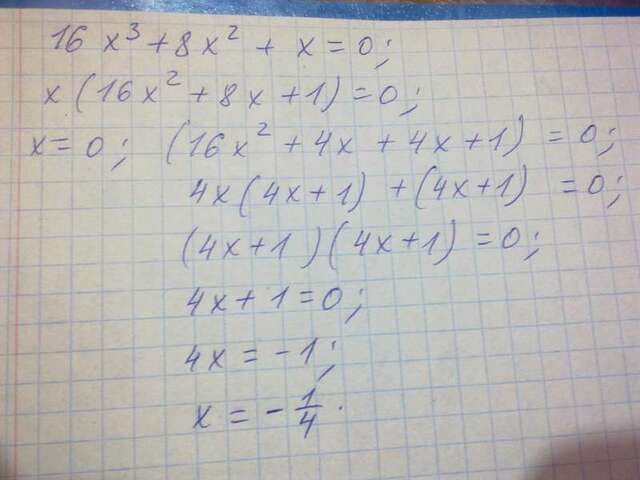 16x³+8x²+x=0;
x(16x²+8x+1)=0;
x=0; (16x²+4x+4x+1)=0;
4x(4x+1)+(4x+1)=0;
(4x+1)(4x+1)=0;
4x+1=0;
4x=-1;
x=-1/4.